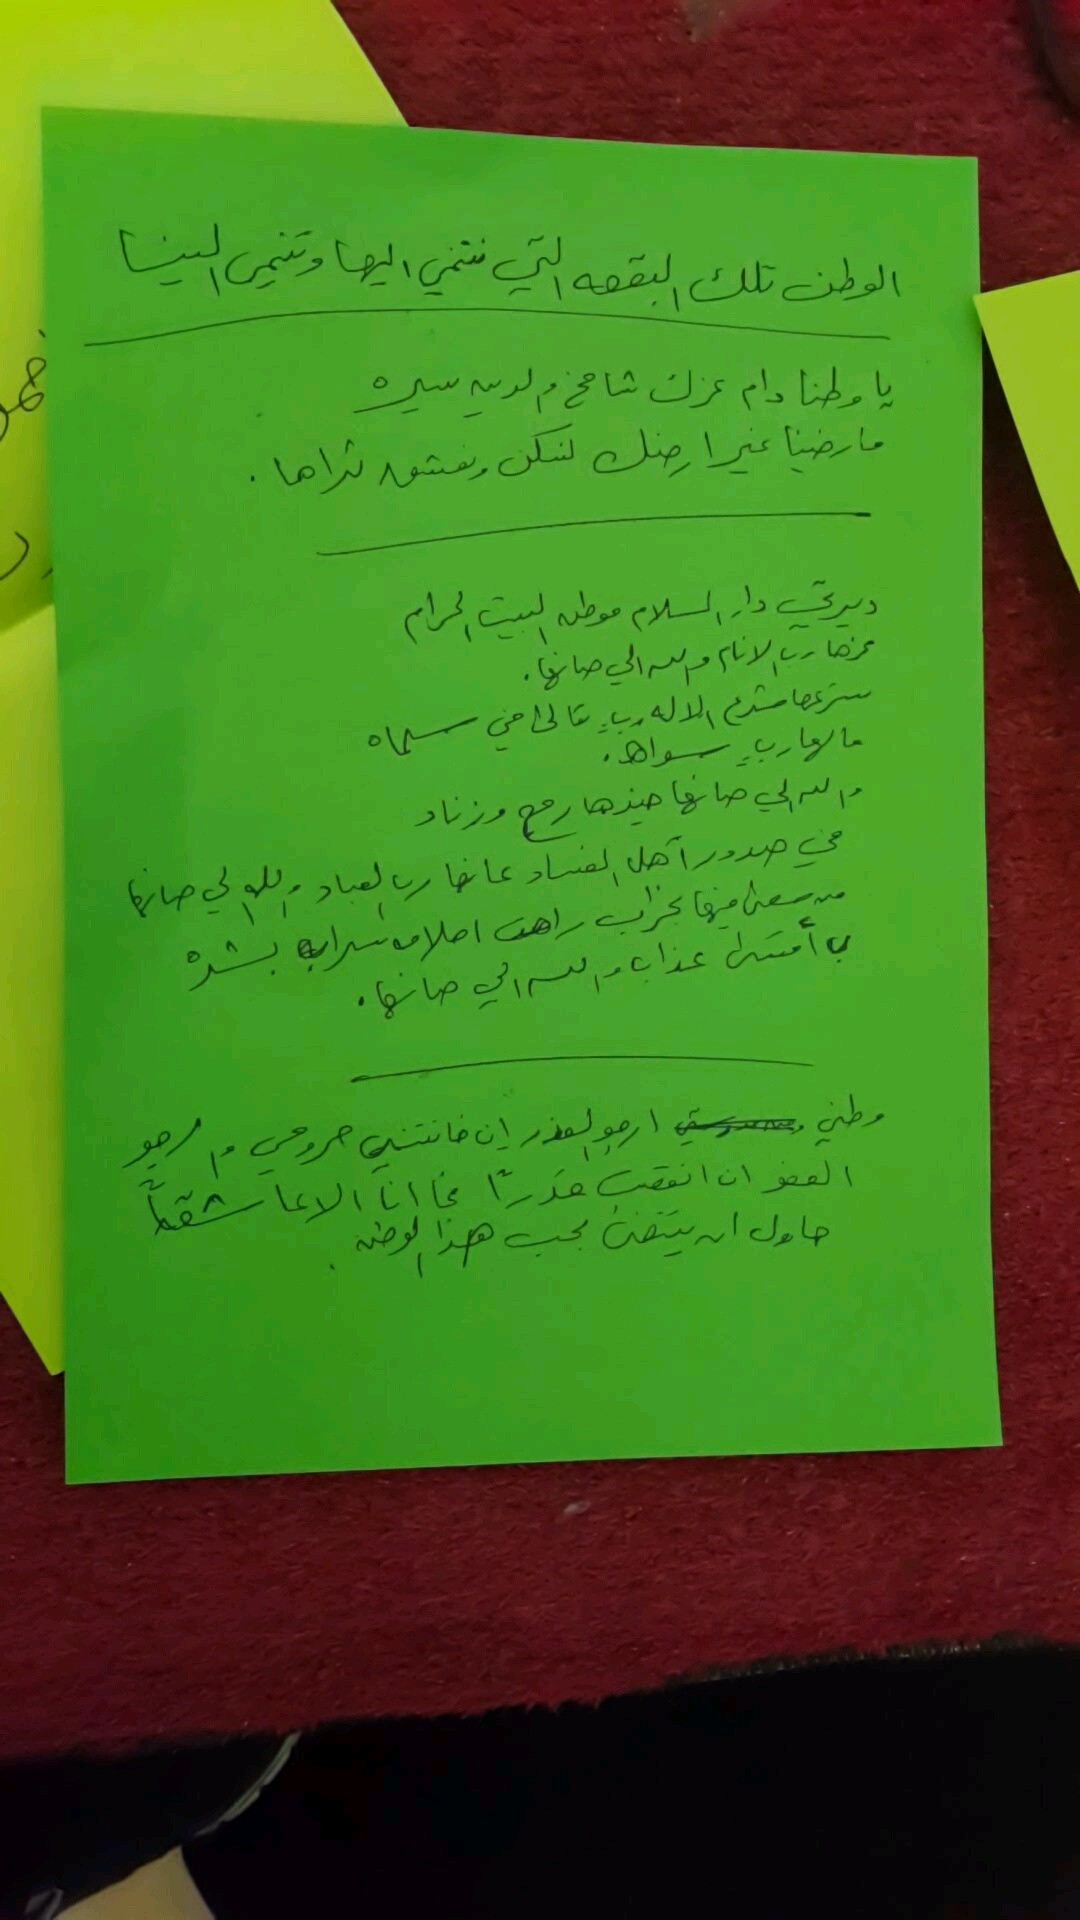 الوطن تلك البقعه التي ننتمي اليها وتنتمي الينا
يا وطنا دام عزك شامخ والدين سيره
مارضينا غير ارضك لنسكن ونعشق ثراها .
ديرتي دار السلام موطن البيت الحرام
عزها رب الانام والله الي صانها .
شرعها شرع الاله رب تعالى في سماه
مالها رب سواه .
والله الي صانها حيزها رمح وزناد
في صدور أهل الفساد عانها رب العباد والله لي صانها
من سعى فيها بخراب راحت احلامه سراب بشره
ب أقسى عذاب والله الي صانها .
وطني ارجو العذر إن خانتني حروفي وارجو
العفو ان انقصت قدرًا فما انا الا عاشقةً
حاول ان يتغنى بحب هذا الوطن .